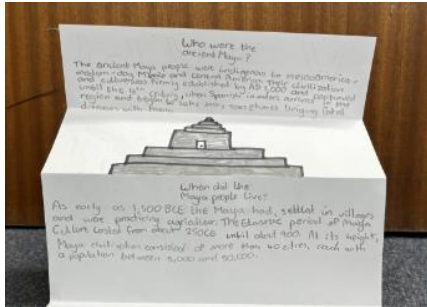 Who were the
ancient Maya?
The ancient Maya people were indigenous to Mesoamerica -
modern-day Mexico and Central America. Their civilization
and culture was firmly established by AD 1,000 and continued
until the 16th century, when Spanish invaders arrived in the
region and began to take many sometimes bringing fatal
diseases with them.
When did the
Maya people live?
As early as 1,500 BCE the Maya had settled in villages
and were practicing agriculture. The Classic period of Maya
Culture lasted from about 250CE until about 900. At its height,
Maya civilization consisted of more than 40 cities, each with
a population between 5,000 and 50,000.